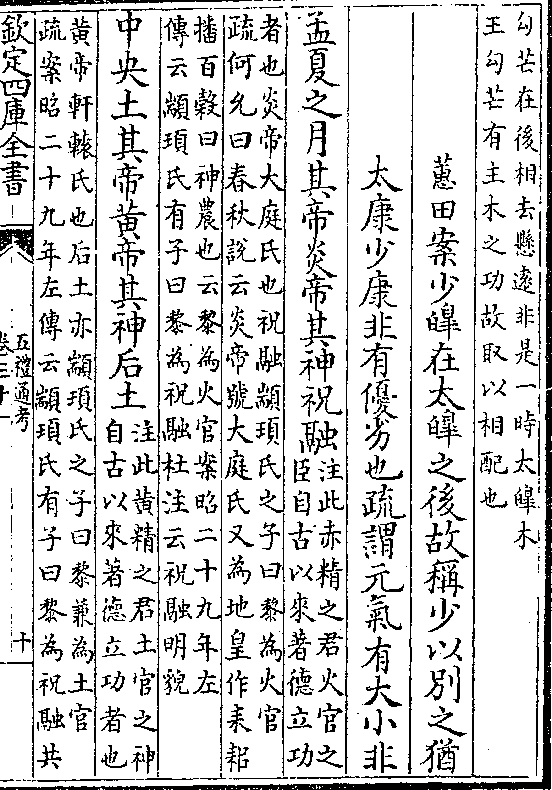 勾芒在後相去懸遠非是一時太皞木
王勾芒有主木之功故取以相配也
蕙田案少皞在太皞之後故稱少以別之猶
太康少康非有優劣也疏謂元氣有大小非
孟夏之月其帝炎帝其神祝融注此赤精之君火官之
臣自古以來著德立功
者也炎帝大庭氏也祝融顓頊氏之子曰黎為火官
疏何允曰春秋說云炎帝號大庭氏又為地皇作耒耜
播百穀曰神農也云黎為火官案昭二十九年左
傳云顓頊氏有子曰黎為祝融杜注云祝融明貌
中央土其帝黃帝其神后土注此黃精之君土官之神
自古以來著德立功者也
黃帝軒轅氏也后土亦顓頊氏之子曰黎兼為土官
疏案昭二十九年左傳云顓頊氏有子曰黎為祝融共
欽定四庫全書
五禮通考
卷三十一
十